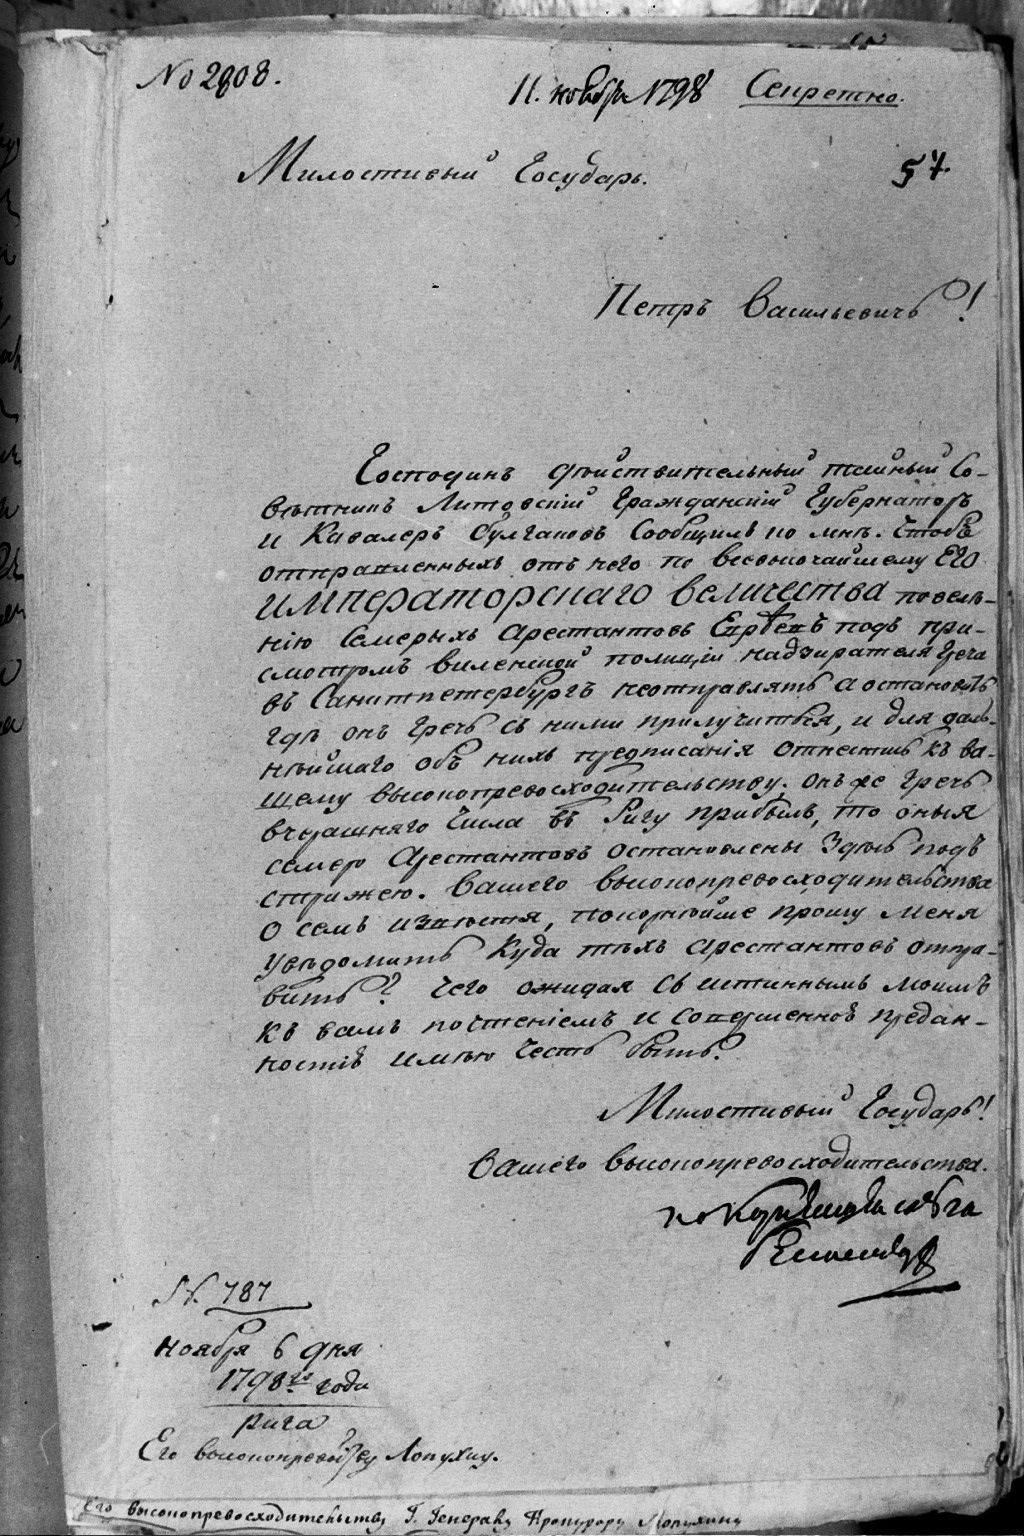 No 2808.
11. ноября 1798 Секретно.
Милостивый Государь.
57.
Петръ Васильевичь!
Господинъ дѣйствительный тайный Со-
вѣтникъ Литовскій Гражданскій Губернаторъ
и Кавалеръ Булгаковъ Сообщилъ ко мнѣ. Чтобъ
отправленныхъ отъ него по высочайшему Его
ИМПЕРАТОРСКАГО Величества повелѣ-
нію Семерыхъ Арестантовъ подъ при-
смотромъ виленской полиціи надзирателя Греча
въ Санктпетербургъ неотправлять а остановить
гдѣ онъ Гречь съ ними прилучиться, и для даль-
нѣйшаго объ нихъ предписанія отнестись къ ва-
шему высокопревосходительству. Онъ же Гречь
вчерашняго Числа въ Ригу прибылъ, то оныя
семеро Арестантовъ остановлены Здѣсь подъ
стражею. Вашего высокопревосходительства
О семъ извѣстя, покорнѣйше прошу меня
Увѣдомить Куда тѣхъ арестантовъ отпра-
вить? Чего ожидая Съ истиннымъ моимъ
къ вамъ почтеніемъ и Совершенною предан-
ностію имѣю Честь быть.
Милостивый Государь!
Вашего высокопревосходительства.
покорнѣйшій слуга
N. 787
Ноября 6 дня
1798го года
Рига
Его высокопревосву Лопухину.
Его высокопревосходительству Г. Генералу Прокурору Лопухину